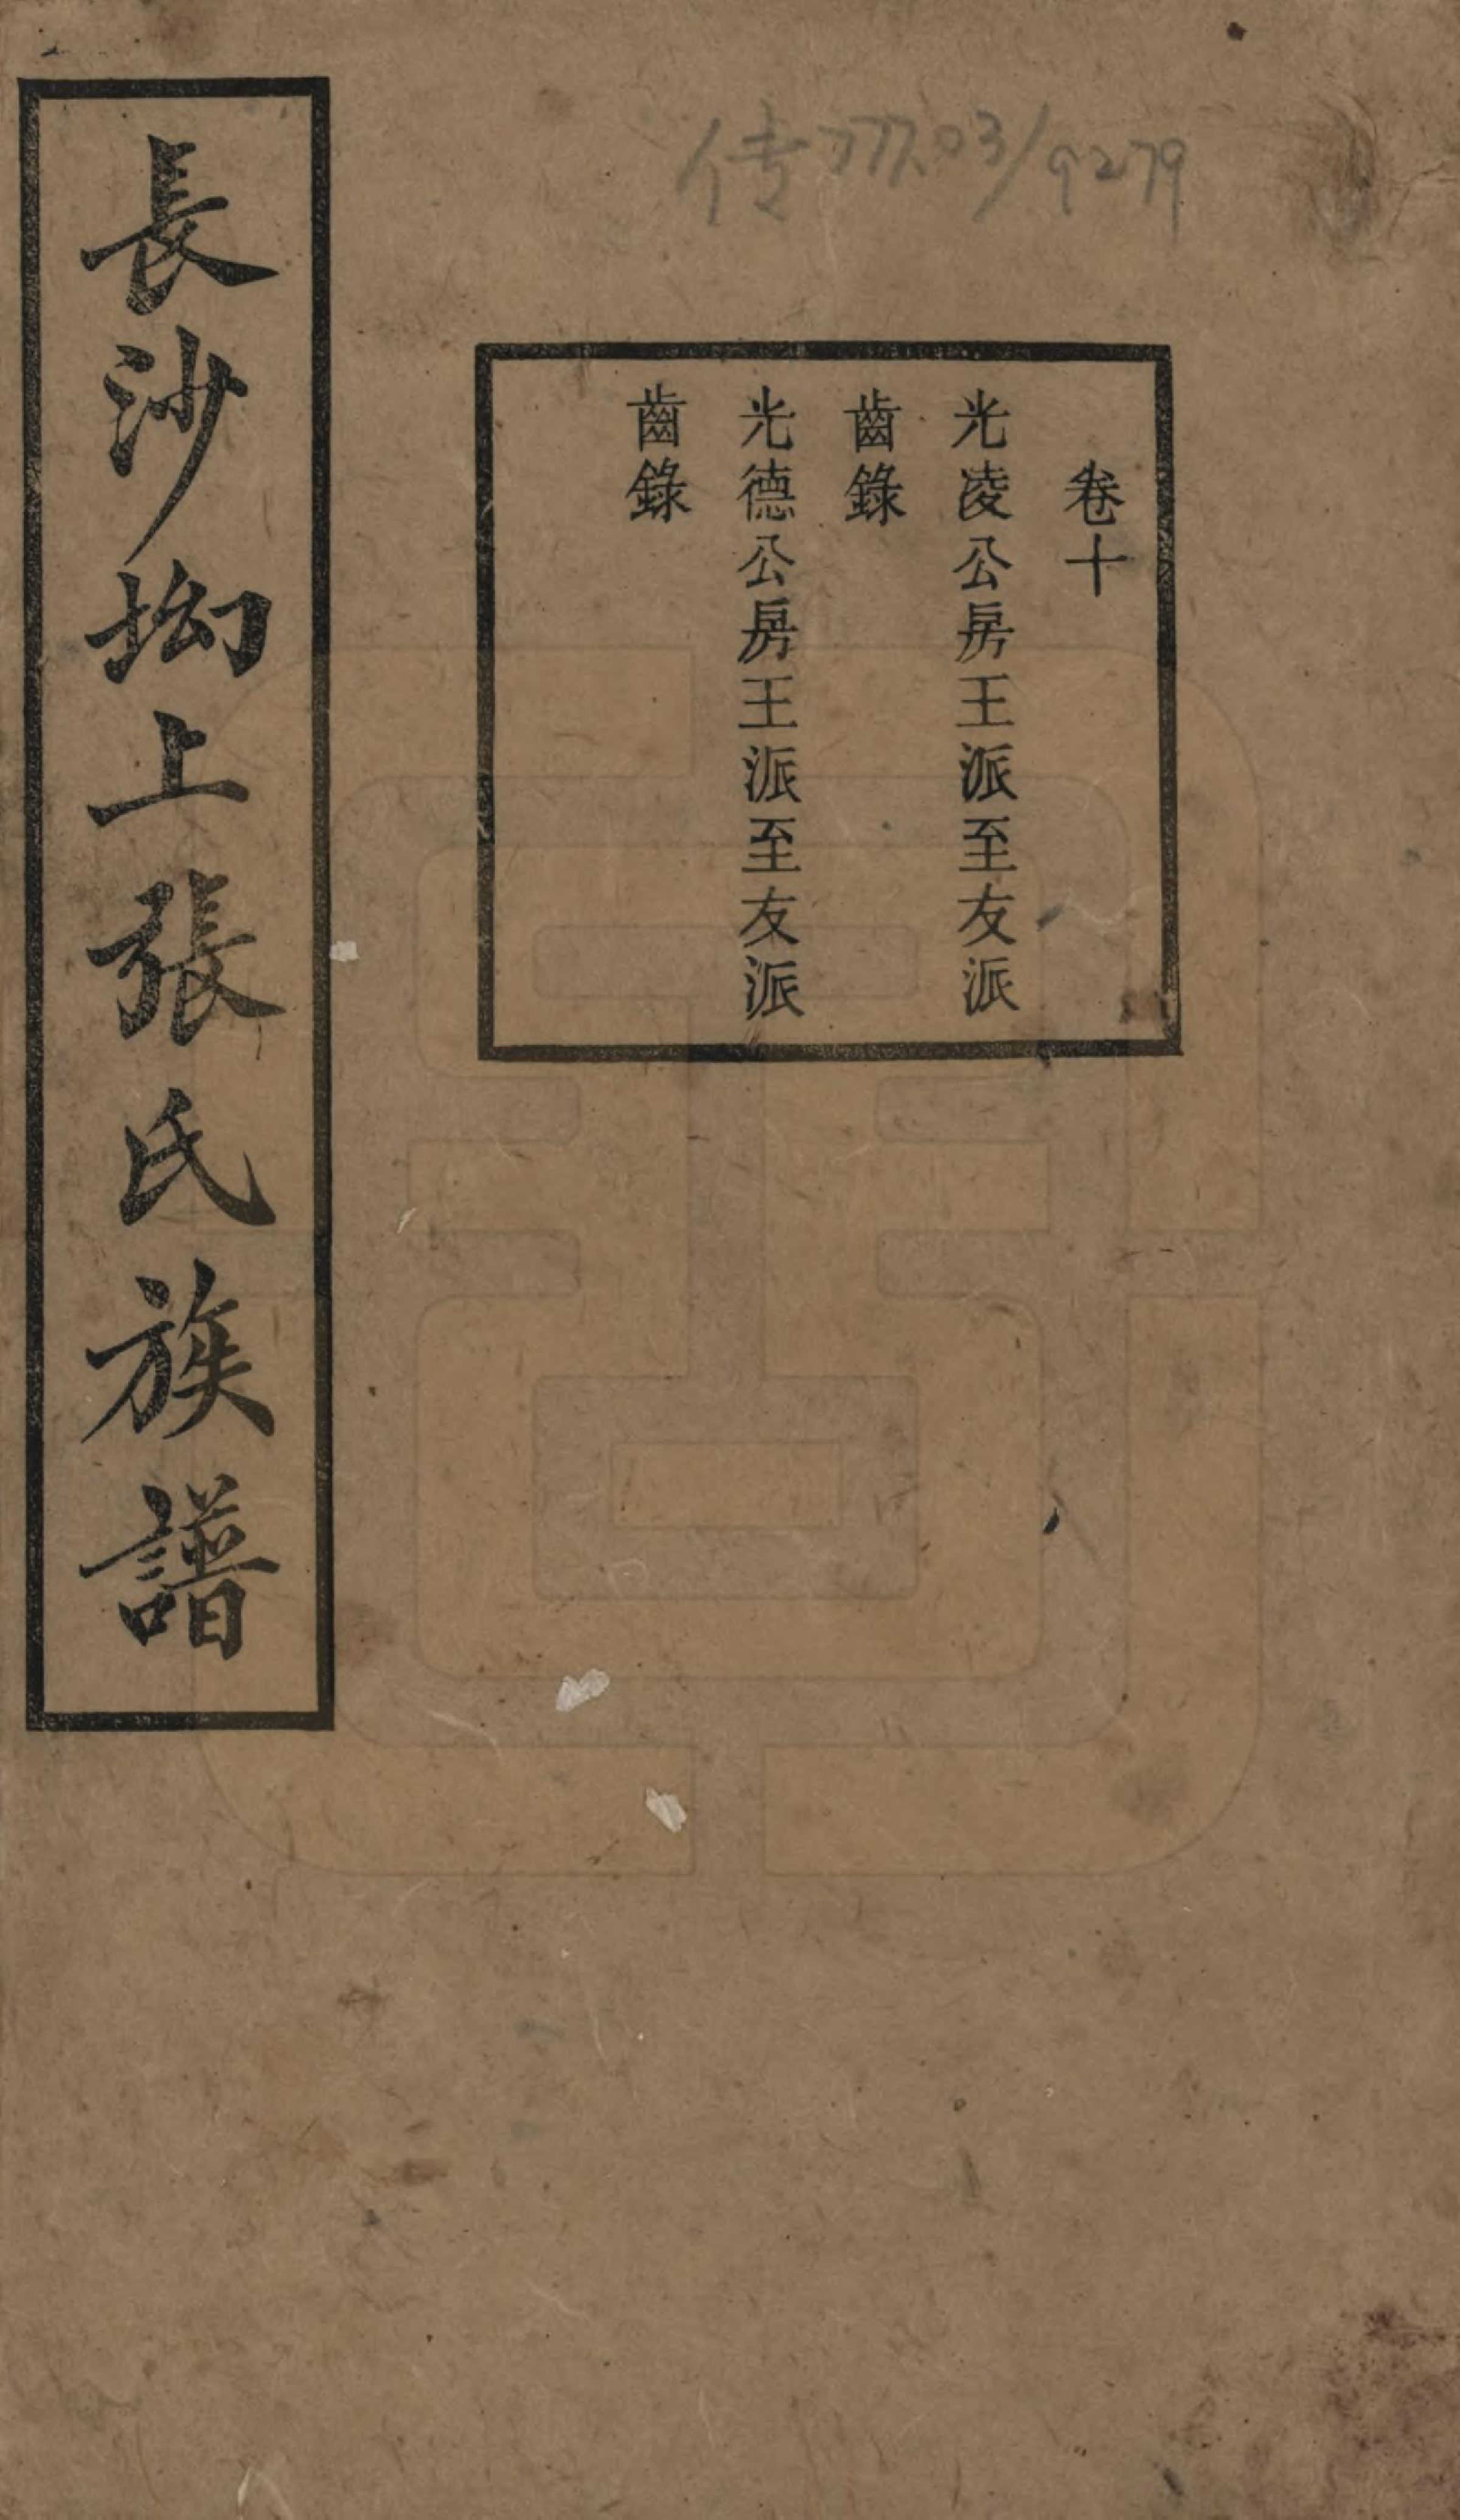 传777.03/9279
卷十
光凌公房王派至友派
齒錄
光德公房王派至友派
齒錄
長沙㘭上張氏族譜